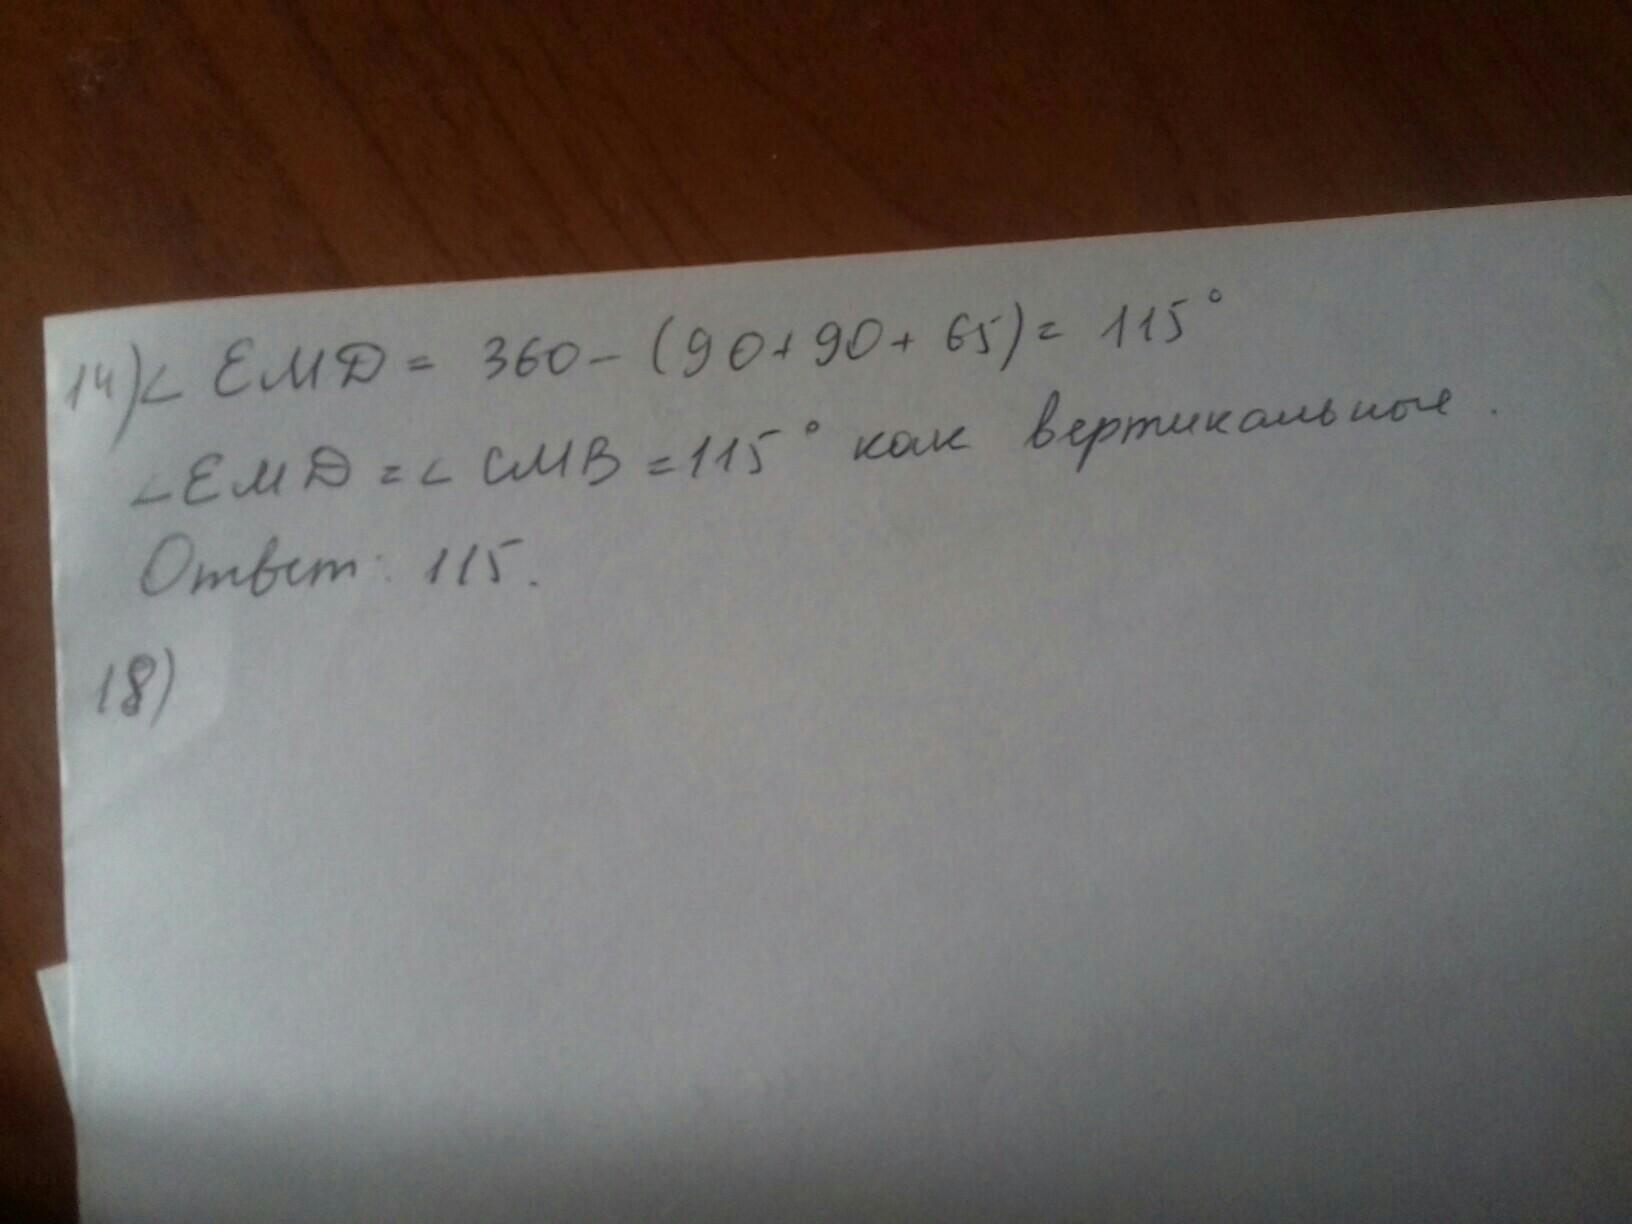 14) ∠ EMD = 360 - (90 + 90 + 65) = 115°
∠EMD = ∠ CMB = 115° как вертикальные.
Ответ: 115.
18)